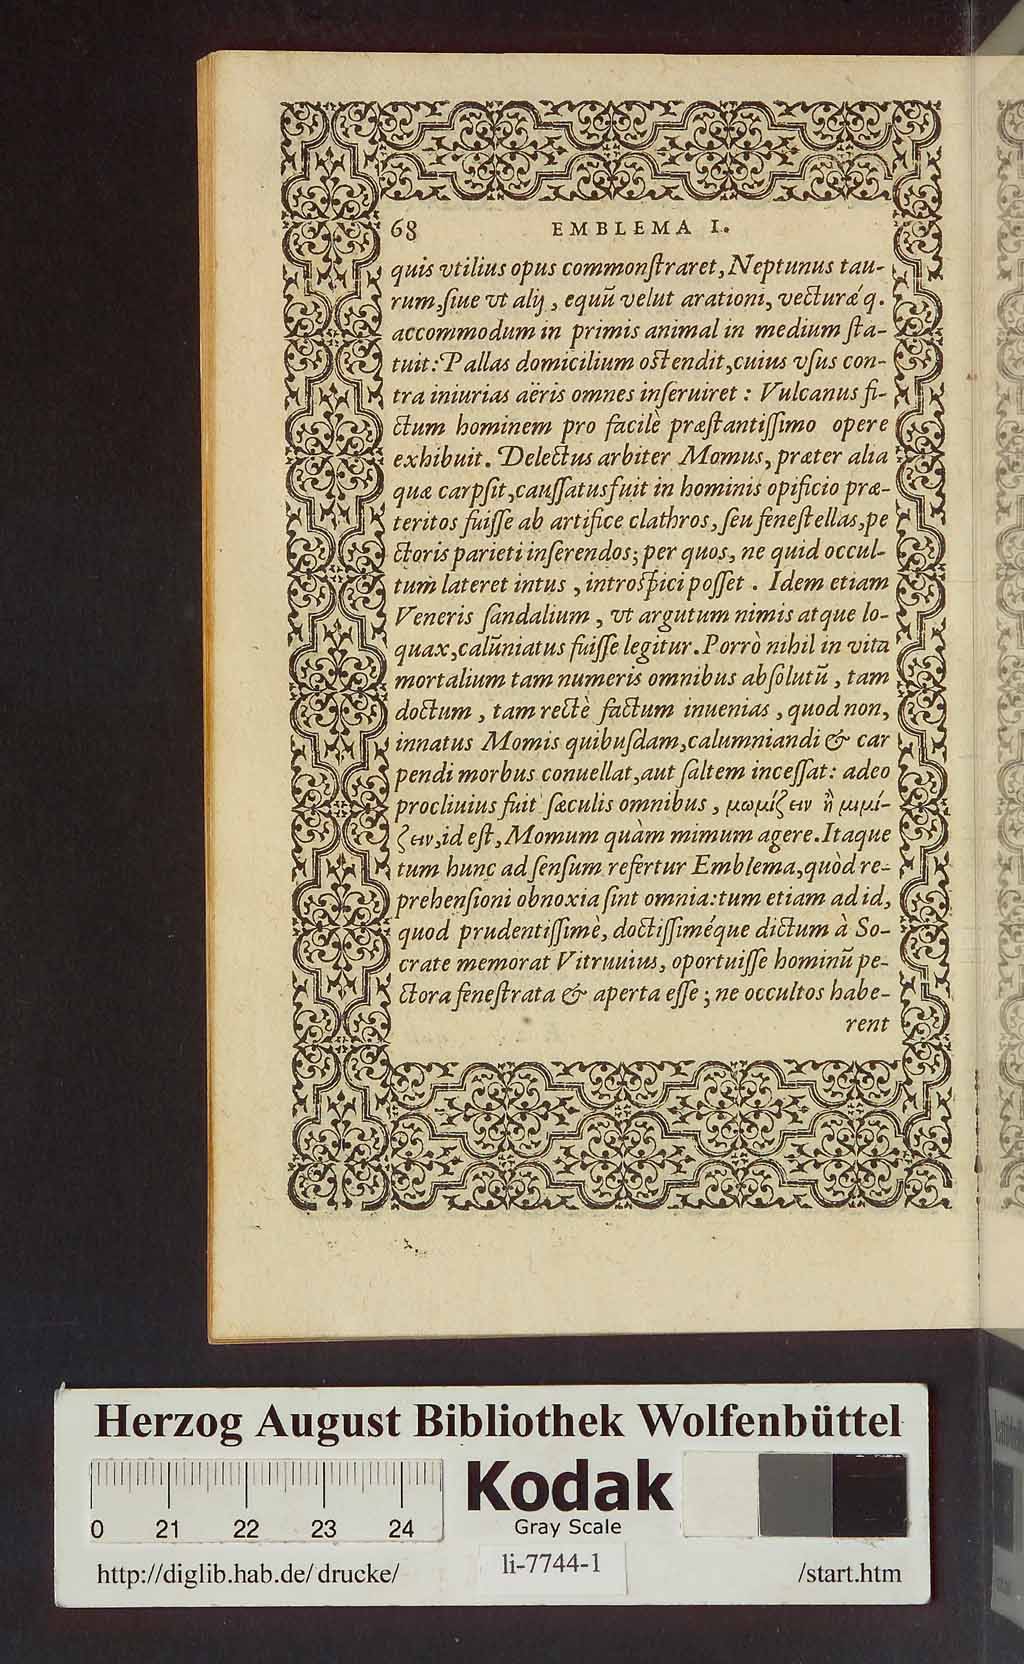 68 EMBLEMA I.
quis vtilius opus commonſtraret, Neptunus tau-
rum, ſiue vt alij, equũ velut arationi, vecturǽq.
accommodum in primis animal in medium ſta-
tuit: Pallas domicilium oſtendit, cuius vſus con-
tra iniurias aëris omnes inſeruiret: Vulcanus fi-
ctum hominem pro facilè præſtantiſſimo opere
exhibuit. Delectus arbiter Momus, præter alia
quæ carpſit, cauſſatus fuit in hominis opificio præ-
teritos fuiſſe ab artifice clathros, ſeu feneſtellas, pe
ctoris parieti inſerendos; per quos, ne quid occul-
tum lateret intus, introſpici poſſet. Idem etiam
Veneris ſandalium, vt argutum nimis atque lo-
quax, calũniatus fuiſſe legitur. Porrò nihil in vita
mortalium tam numeris omnibus abſolutũ, tam
doctum, tam rectè factum inuenias, quod non,
innatus Momis quibuſdam, calumniandi & car
pendi morbus conuellat, aut ſaltem inceſſat: adeo
procliuius fuit ſæculis omnibus, μωμίζειν ἢ μιμί-
ζειν, id eſt, Momum quàm mimum agere. Itaque
tum hunc ad ſenſum refertur Emblema, quòd re-
prehenſioni obnoxia ſint omnia: tum etiam ad id,
quod prudentiſſimè, doctiſſiméque dictum à So-
crate memorat Vitruuius, oportuiſſe hominũ pe-
ctora feneſtrata & aperta eſſe; ne occultos habe-
rent
Herzog August Bibliothek Wolfenbüttel
0 21 22 23 24
Kodak
Gray Scale
http://diglib.hab.de/drucke/ li-7744-1 /start.htm